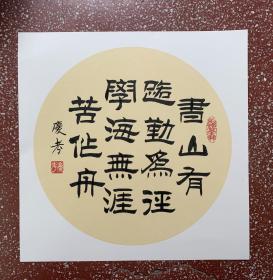 書山有
路勤為徑
學海無涯
苦作舟
慶孝